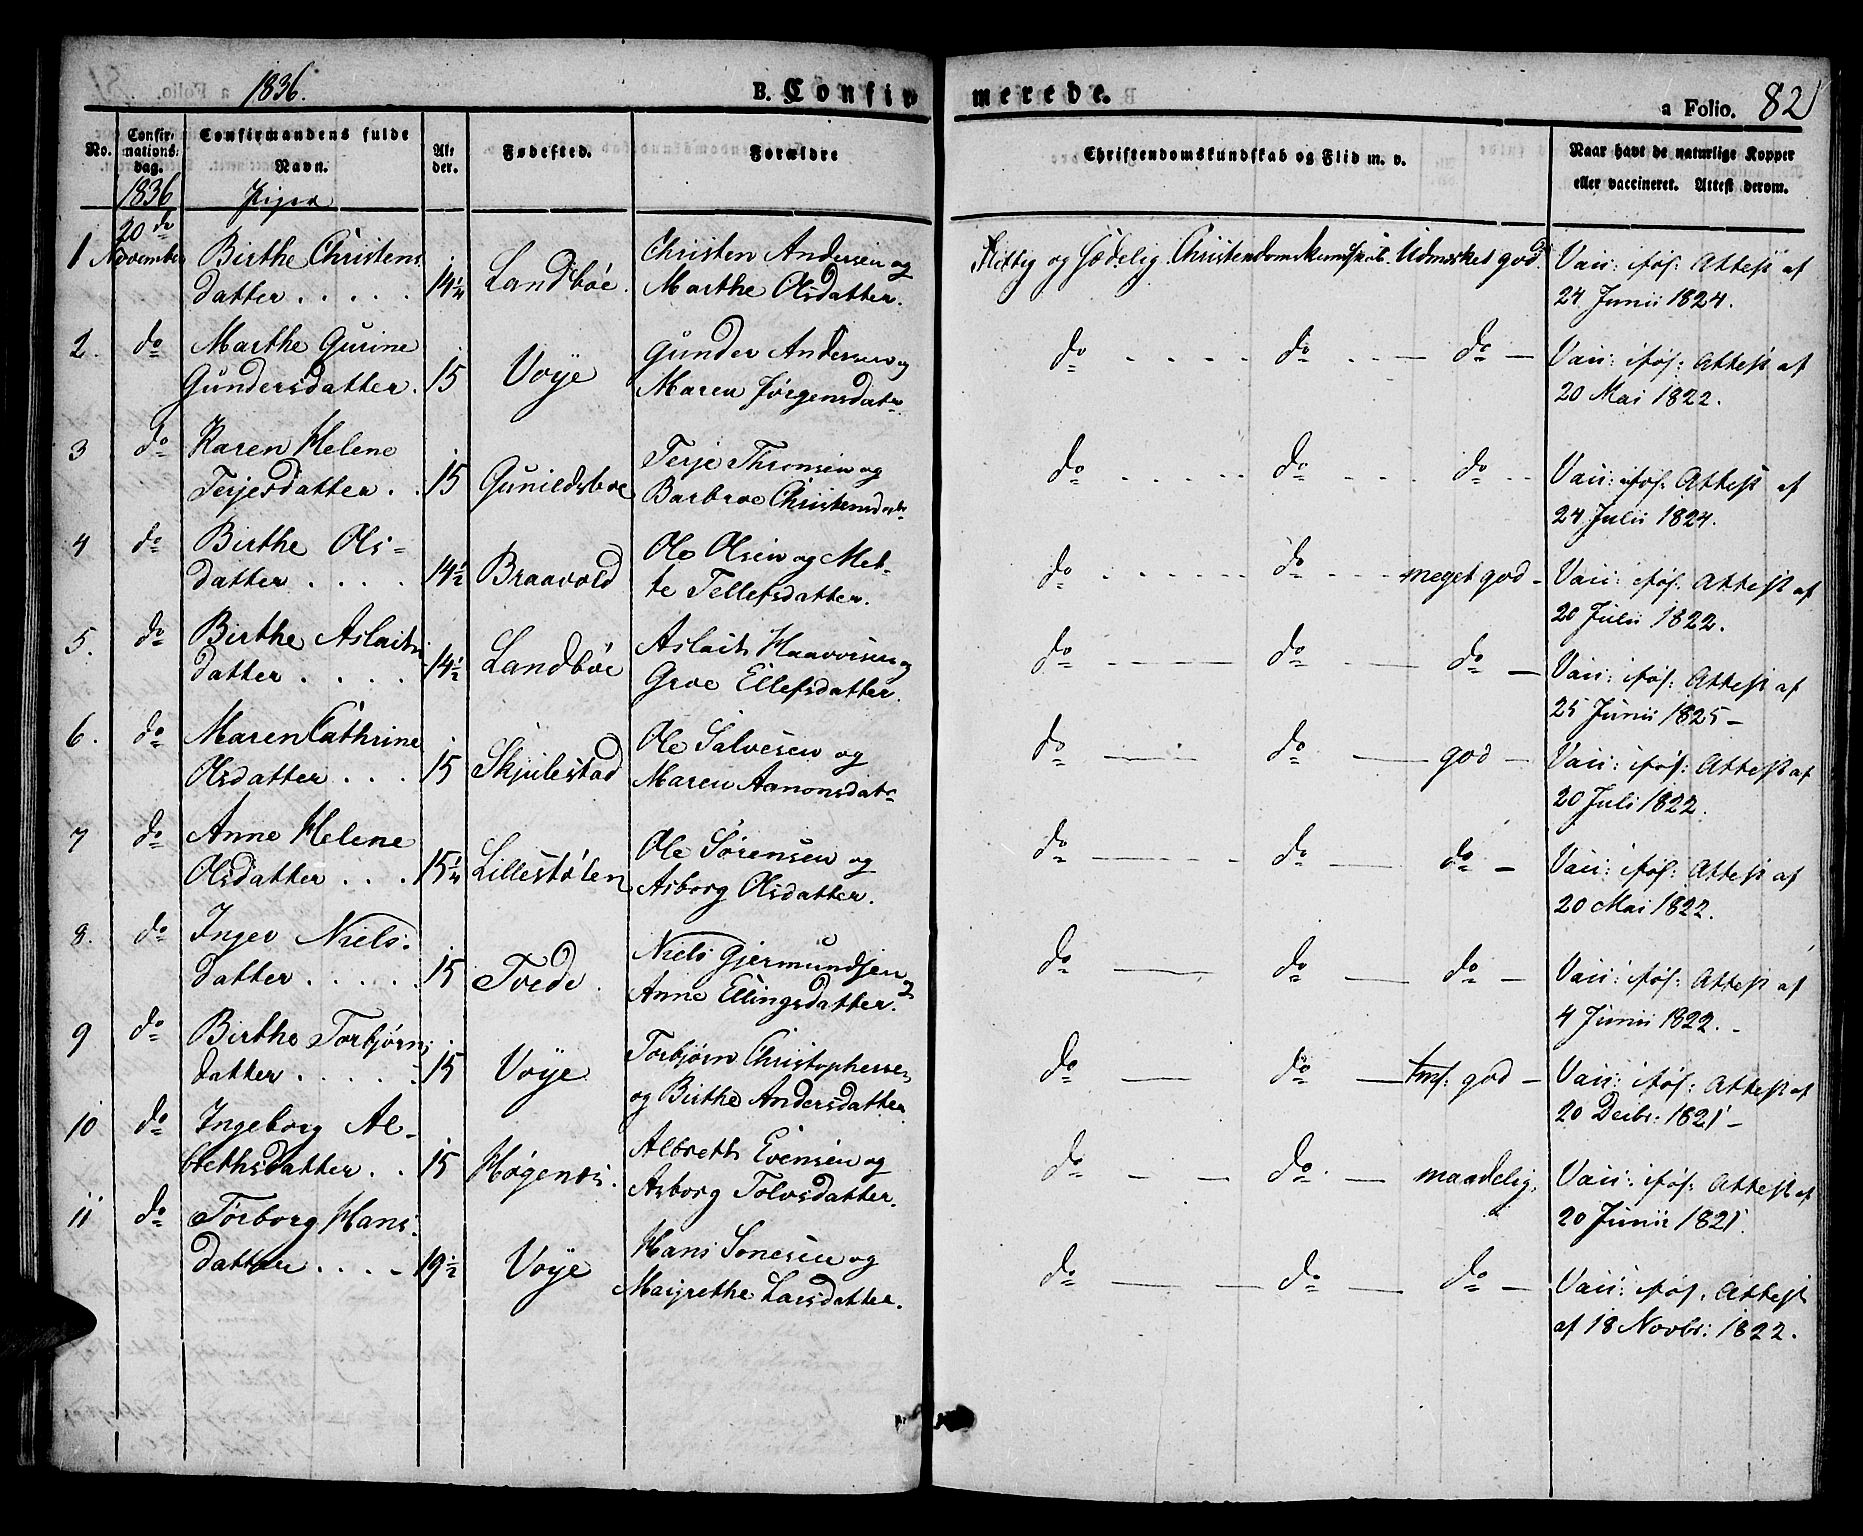 1836.
B. Confirmerede.
a Folio. 82
No.
Confirmations: dag.
Confirmandens fulde Navn.
Alder.
Fødested.
Forældre
Christendomskundskab og Flid m. v.
Naar havt de naturlige Kopper eller vaccineret. Attest derom.
1836
Piger
20de
1 November Birthe Christens 14¼ Landbøe. Christen Andersen og Flittig og sædelig. Christendomskundskab. Udmærket god. Vacc: iføl: Attest af
datter . . . . . Marthe Olsdatter. 24 Junii 1824.
2. do Marthe Gurine 15 Voye Gunder Andersen og do do do Vacc: iføl: Attest af
Gundersdatter. Maren Jørgensdatr. 20 Mai 1822.
3 do Karen Helene 15 Gunildsboe Terje Thronsen og do do do Vacc: iføl: Attest af
Terjesdatter . . Barbroe Christensdatr 24 Julii 1824.
4 do Birthe Ols- 14½ Braavold Ole Olsen og Met- do do meget god Vacc: iføl: Attest af
datter . . . . te Tellefsdatter. 20 Julii 1822.
5. do Birthe Aslachs 14½ Landbøe Aslach Haavorsen og do do do Vacc: iføl: Attest af
datter . . . . Groe Ellefsdatter. 25 Junii 1825
6. do Maren Cathrine 15 Skjulestad Ole Salvesen og do do god Vacc: iføl: Attest af
Olsdatter . . . Maren Aanonsdatr 20 Juli 1822.
7 do Anne Helene 15¼ Lillestølen Ole Sørensen og do do do Vacc: iføl: Attest af
Olsdatter . . . Asborg Olsdatter. 20 Mai 1822.
8. do Inger Niels: 15 Tvede. Niels Gjermundsen do do do Vacc: iføl: Attest af
datter . . . . . Anne Ellingsdatter. 4 Junii 1822.
9 do Birthe Torbjørns 15 Voye Torbjørn Christophersen do do tml: god Vacc: iføl: Attest af
datter . . . . . og Birthe Andersdatter 20 Decbr: 1821
10 do Ingeborg Al- 15 Høgenes. Albreth Evensen og do do maadelig. Vacc: iføl: Attest af
brethsdatter . . Asborg Tolvsdatter. 20 Junii 1821
11 do Torborg Hans 19½ Voye Hans Sonesen og do do do Vacc: iføl: Attest
datter . . . Margrethe Larsdatter. af 18 Novbr: 1822.